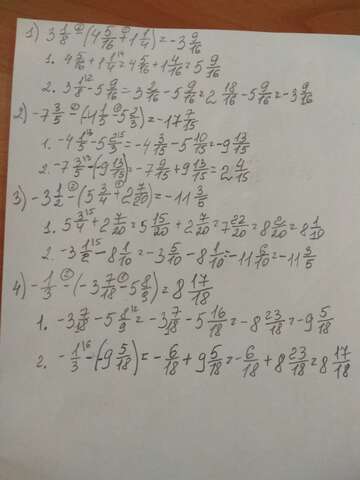 1) 3 1/8 - (4 5/16 + 1 1/4) = -3 9/16
1. 4 5/16 + 1 1/4 = 4 5/16 + 1 4/16 = 5 9/16
2. 3 1/8 - 5 9/16 = 3 2/16 - 5 9/16 = 2 18/16 - 5 9/16 = -3 9/16
2) -7 3/5 - (-4 1/5 - 5 2/3) = -17 7/15
1. -4 1/5 - 5 2/3 = -4 3/15 - 5 10/15 = -9 13/15
2. -7 3/5 - (-9 13/15) = -7 9/15 + 9 13/15 = 2 4/15
3) -3 1/2 - (5 3/4 + 2 7/20) = -11 3/5
1. 5 3/4 + 2 7/20 = 5 15/20 + 2 7/20 = 7 22/20 = 8 2/20 = 8 1/10
2. -3 1/2 - 8 1/10 = -3 5/10 - 8 1/10 = -11 6/10 = -11 3/5
4) -1/3 - (-3 7/18 - 5 8/9) = 8 17/18
1. -3 7/18 - 5 8/9 = -3 7/18 - 5 16/18 = -8 23/18 = -9 5/18
2. -1/3 - (-9 5/18) = -6/18 + 9 5/18 = -6/18 + 8 23/18 = 8 17/18